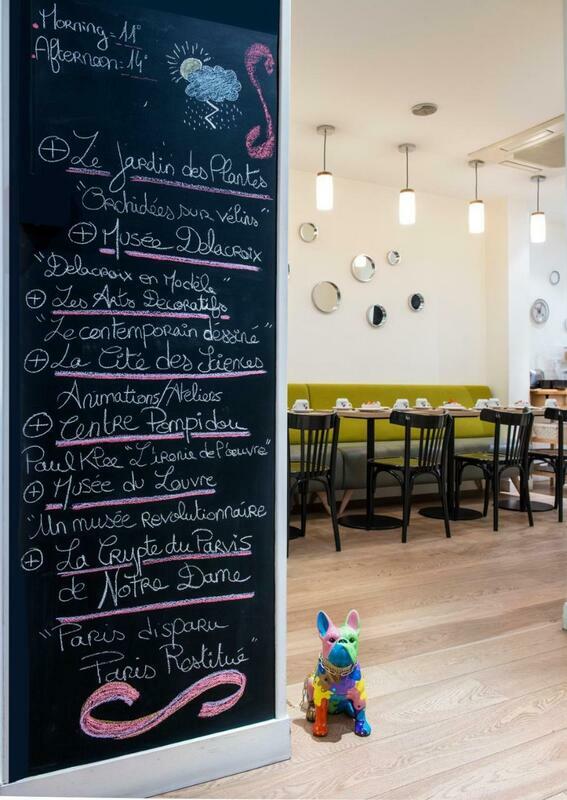 Morning = 11°
Afternoon = 14°
+ Le Jardin des Plantes
"Orchidées sur vélins"
+ Musée Delacroix
"Delacroix en Modèle"
+ Les Arts Decoratifs
"Le contemporain dessiné"
+ La Cité des Siences
Animations/Ateliers
+ Centre Pompidou
Paul Klee "L'ironie de l'oeuvre"
+ Musée du Louvre
"Un musée revolutionnaire
+ La Crypte du Parvis
de Notre Dame
"Paris disparu
Paris Restitué"